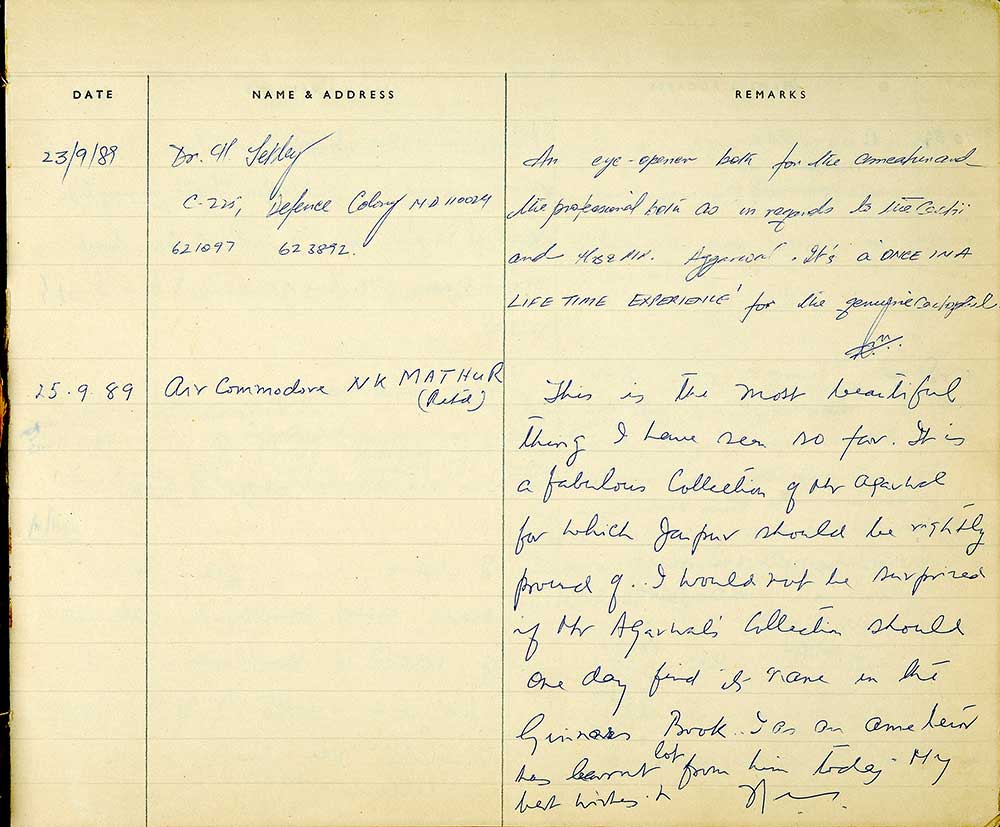 DATE NAME & ADDRESS REMARKS
23/9/89 Dr. H.
C-225, Defence Colony ND 110024
621097 623892.
An eye-opener both for the amateur and
the professional both as in regards to the Cactii
and Mr. Aggarwal. It's a 'ONCE IN A
LIFE TIME EXPERIENCE' for the genuine
25.9.89 Air Commodore NK MATHUR
(Retd)
This is the most beautiful
thing I have seen so far. It is
a fabulous Collection of Mr Agarwal
for which Jaipur should be rightly
proud of.. I would not be surprized
if Mr Agarwal's Collection should
one day find its name in the
Book. I as an amateur
has learnt lot from him today. My
best wishes.